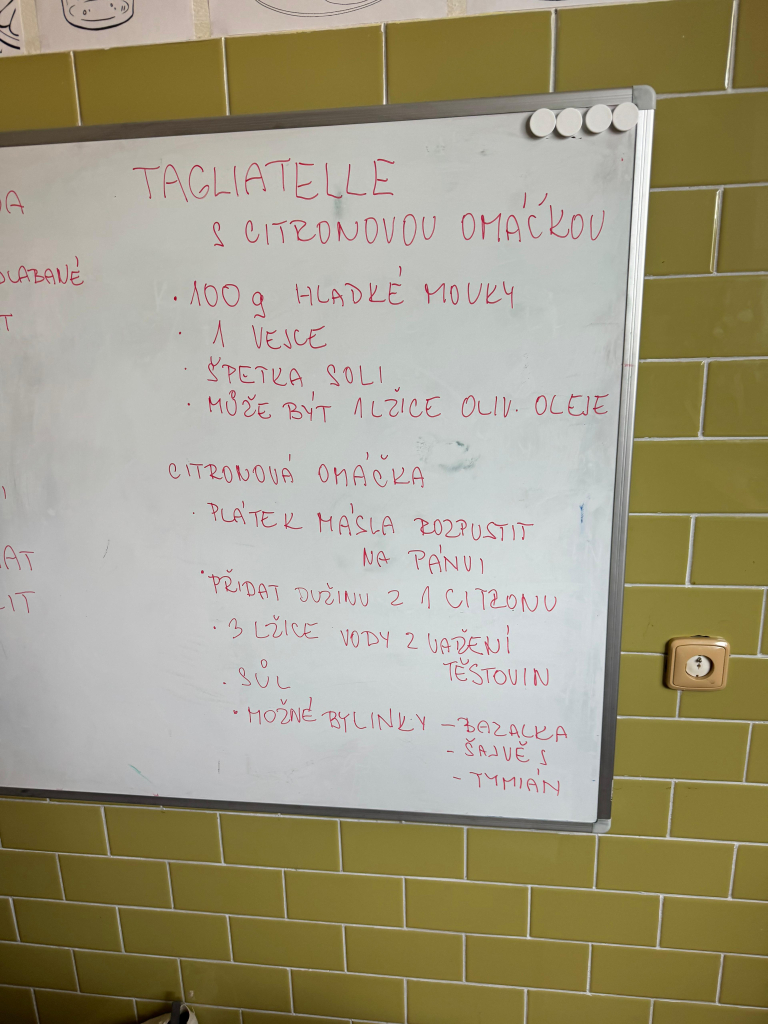 TAGLIATELLE
S CITRONOVOU OMÁČKOU
· 100 g HLADKÉ MOUKY
· 1 VEJCE
· ŠPETKA SOLI
· MŮŽE BÝT 1 LŽÍCE OLIV. OLEJE
CITRONOVÁ OMÁČKA
· PLÁTEK MÁSLA ROZPUSTIT
NA PÁNVI
· PŘIDAT DUŽINU Z 1 CITRONU
· 3 LŽÍCE VODY Z VAŘENÍ
TĚSTOVIN
· SŮL
· MOŽNÉ BYLINKY – BAZALKA
– ŠALVĚJ
– TYMIÁN